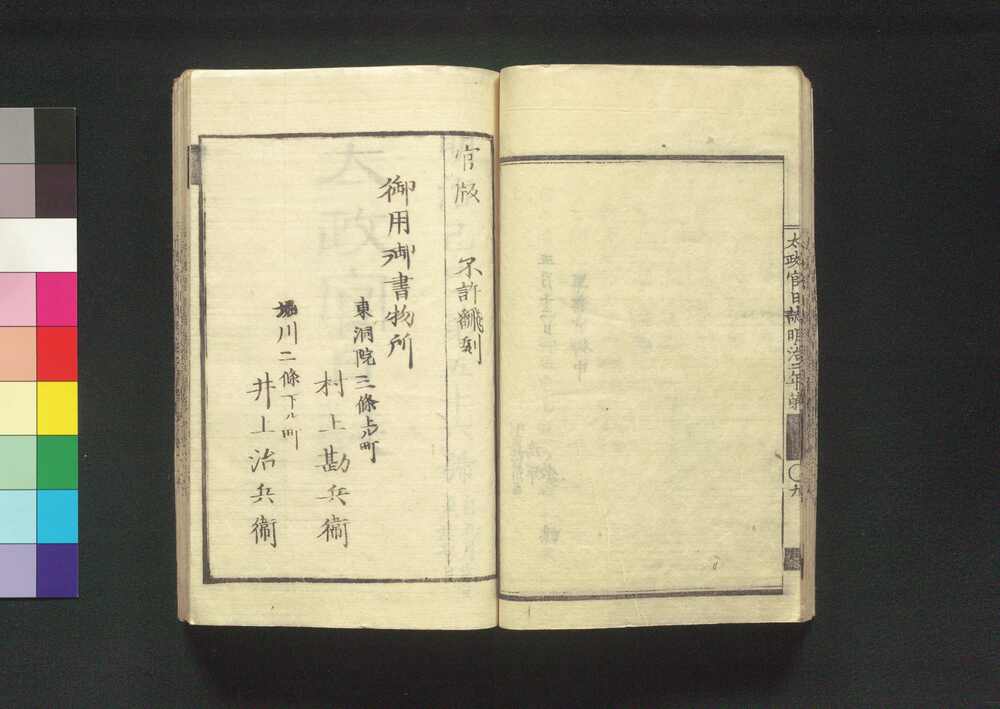 太政官日誌明治二年第
九
官版 不許翻刻
御用御書物所
東洞院三條上ル町
村上勘兵衛
堀川二條下ル町
井上治兵衛